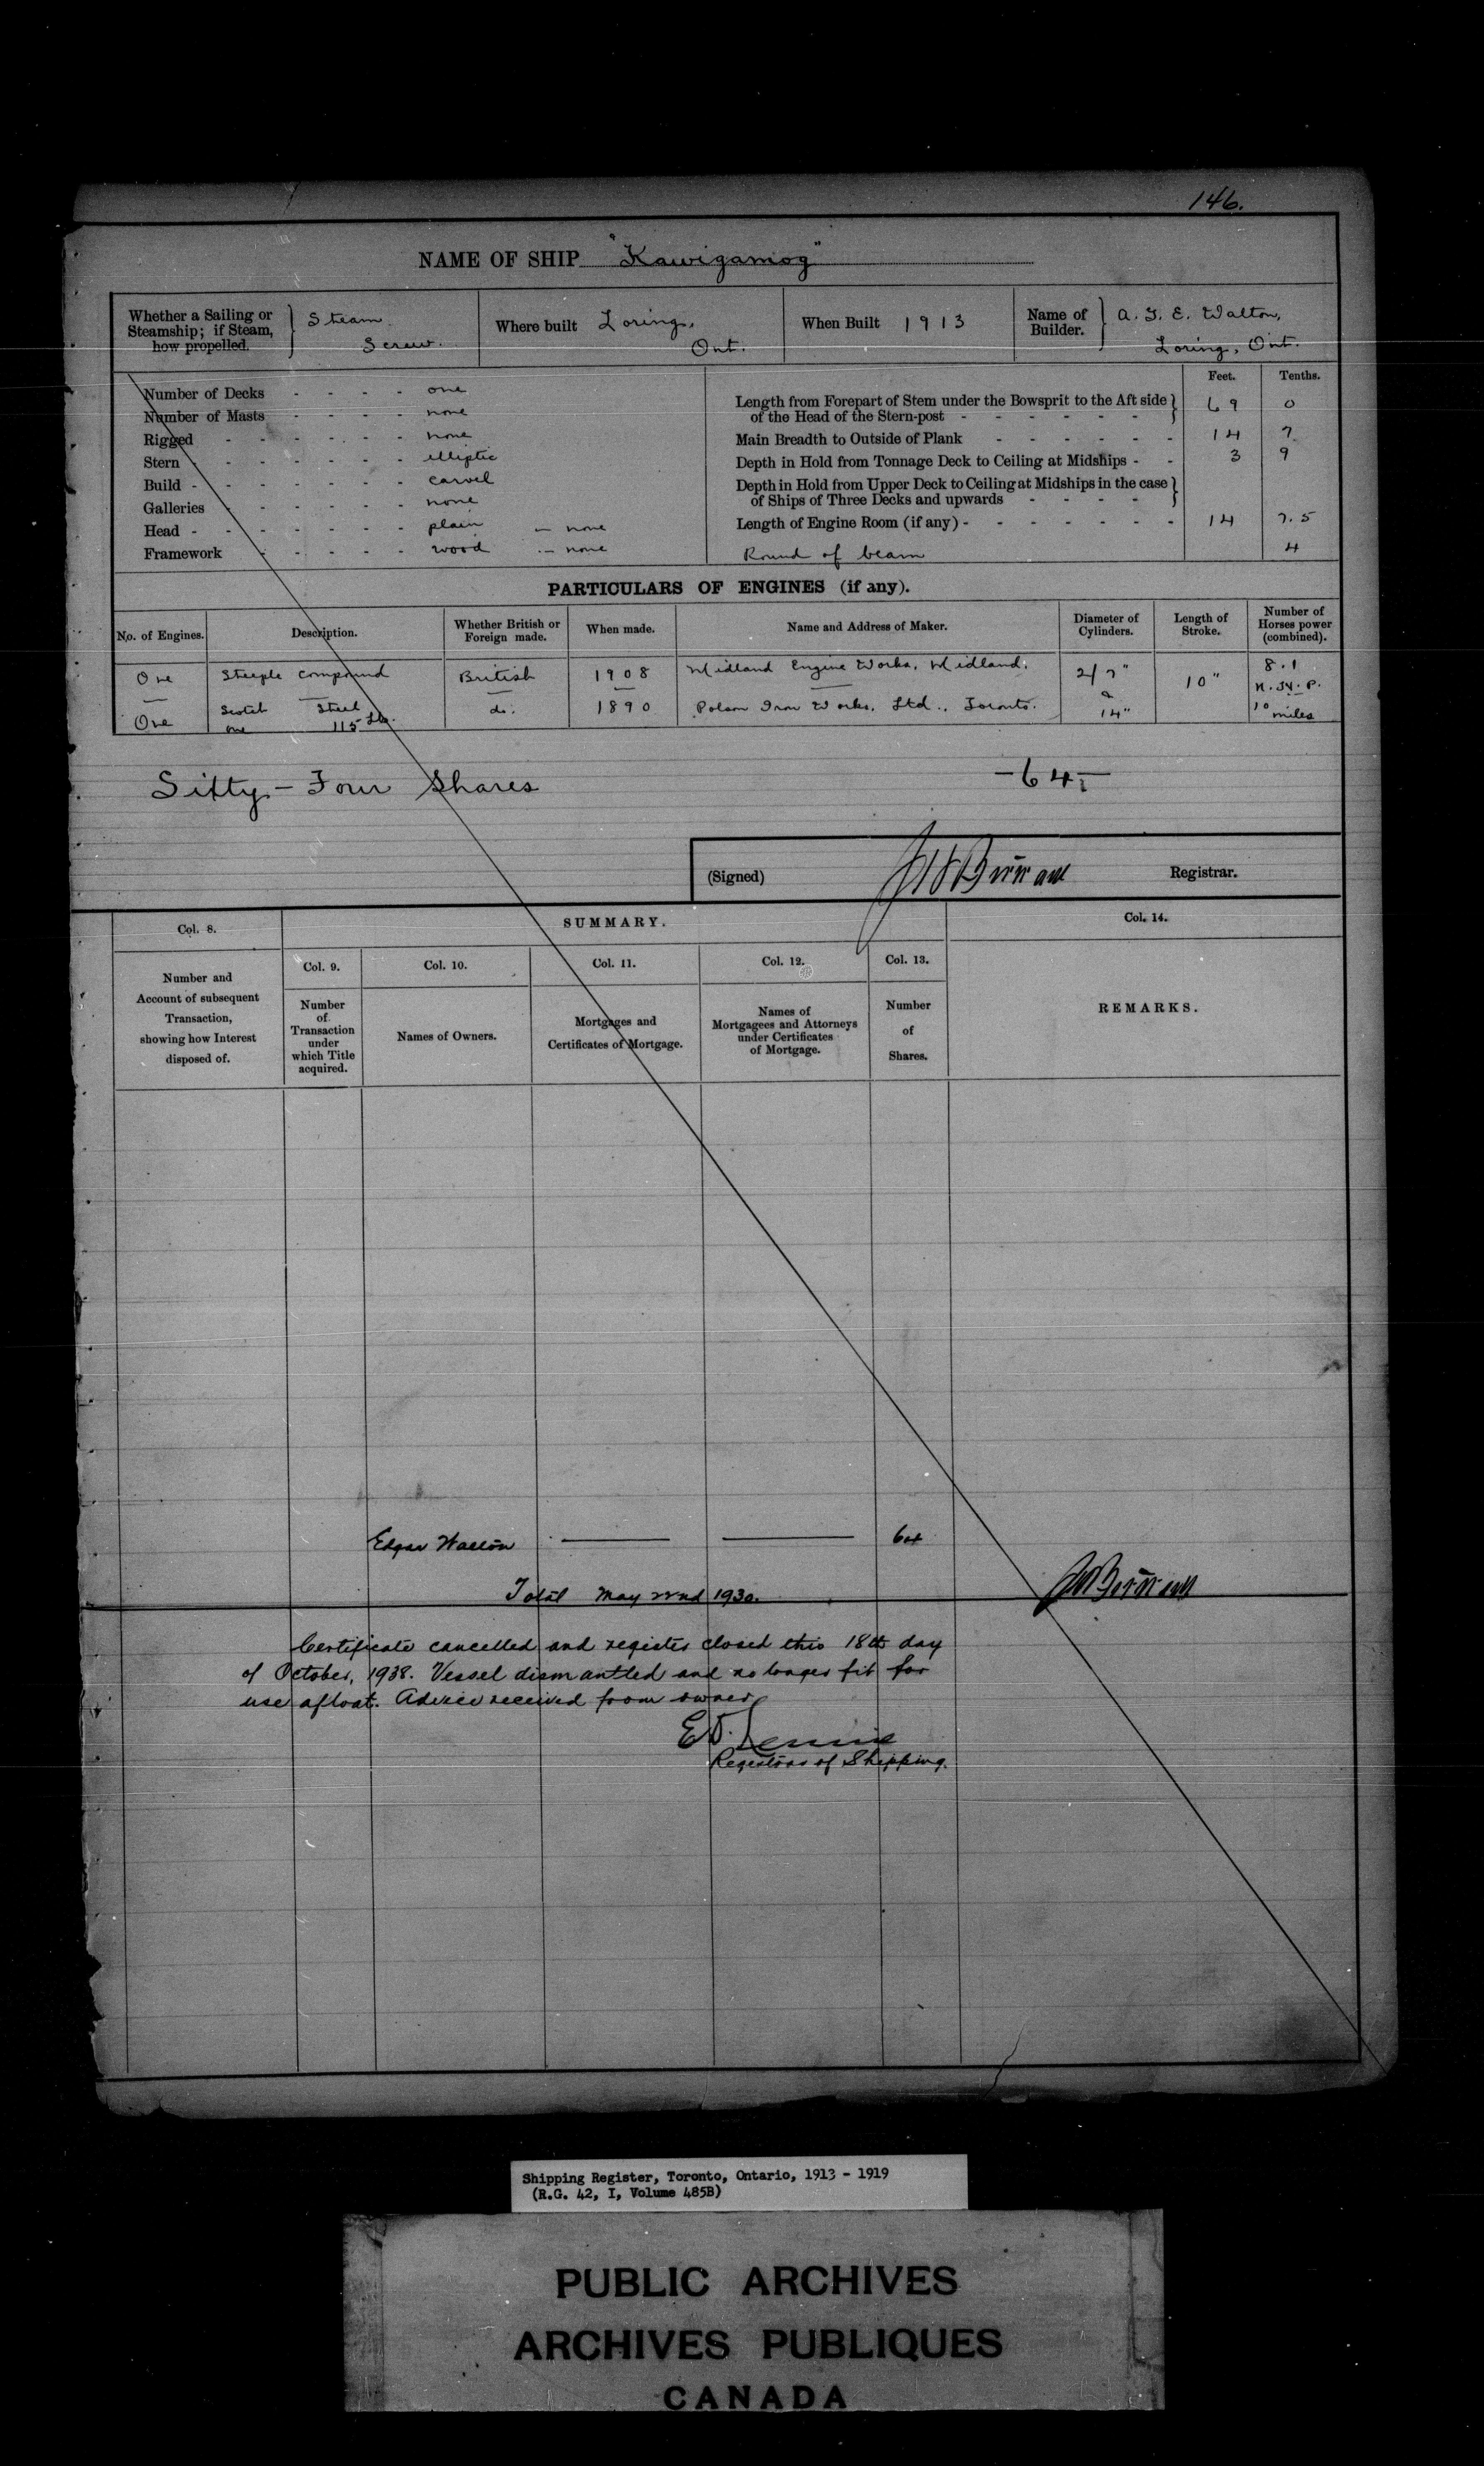 146.
NAME OF SHIP "Kawigamog"
Whether a Sailing or Steamship; if Steam, how propelled. } Steam Screw.
Where built Loring, Ont.
When Built 1913
Name of Builder. } A. T. E. Walton, Loring, Ont.
Feet. Tenths.
Number of Decks - - - - one
Number of Masts - - - - none
Rigged - - - - - - none
Stern - - - - - - elliptic
Build - - - - - - - carvel
Galleries - - - - - none
Head - - - - - - - plain — none
Framework - - - - - wood — none
Length from Forepart of Stem under the Bowsprit to the Aft side
of the Head of the Stern-post - - - - - - } 69 0
Main Breadth to Outside of Plank - - - - - - 14 7
Depth in Hold from Tonnage Deck to Ceiling at Midships - - 3 9
Depth in Hold from Upper Deck to Ceiling at Midships in the case
of Ships of Three Decks and upwards - - - - }
Length of Engine Room (if any) - - - - - - - - 14 7.5
Round of beam 4
PARTICULARS OF ENGINES (if any).
No. of Engines. Description. Whether British or Foreign made. When made. Name and Address of Maker. Diameter of Cylinders. Length of Stroke. Number of Horses power (combined).
One Steeple compound British 1908 Midland Engine Works, Midland. 2/7" 10" 8.1
& N.H.P.
One Scotch Steel do. 1890 Polson Iron Works, Ltd., Toronto. 14" 10 miles
one 115 lbs.
Sixty-Four Shares —64—
(Signed) Registrar.
Col. 8. SUMMARY. Col. 14.
Col. 9. Col. 10. Col. 11. Col. 12. Col. 13.
Number and
Account of subsequent
Transaction,
showing how Interest
disposed of.
Number
of
Transaction
under
which Title
acquired.
Names of Owners.
Mortgages and
Certificates of Mortgage.
Names of
Mortgagees and Attorneys
under Certificates
of Mortgage.
Number
of
Shares.
REMARKS.
Edgar Walton — — 64
Total May 22nd 1930.
Certificate cancelled and register closed this 18th day
of October, 1938. Vessel dismantled and no longer fit for
use afloat. Advice received from owner
Registrar of Shipping.
Shipping Register, Toronto, Ontario, 1913 - 1919
(R.G. 42, I, Volume 485B)
PUBLIC ARCHIVES
ARCHIVES PUBLIQUES
CANADA